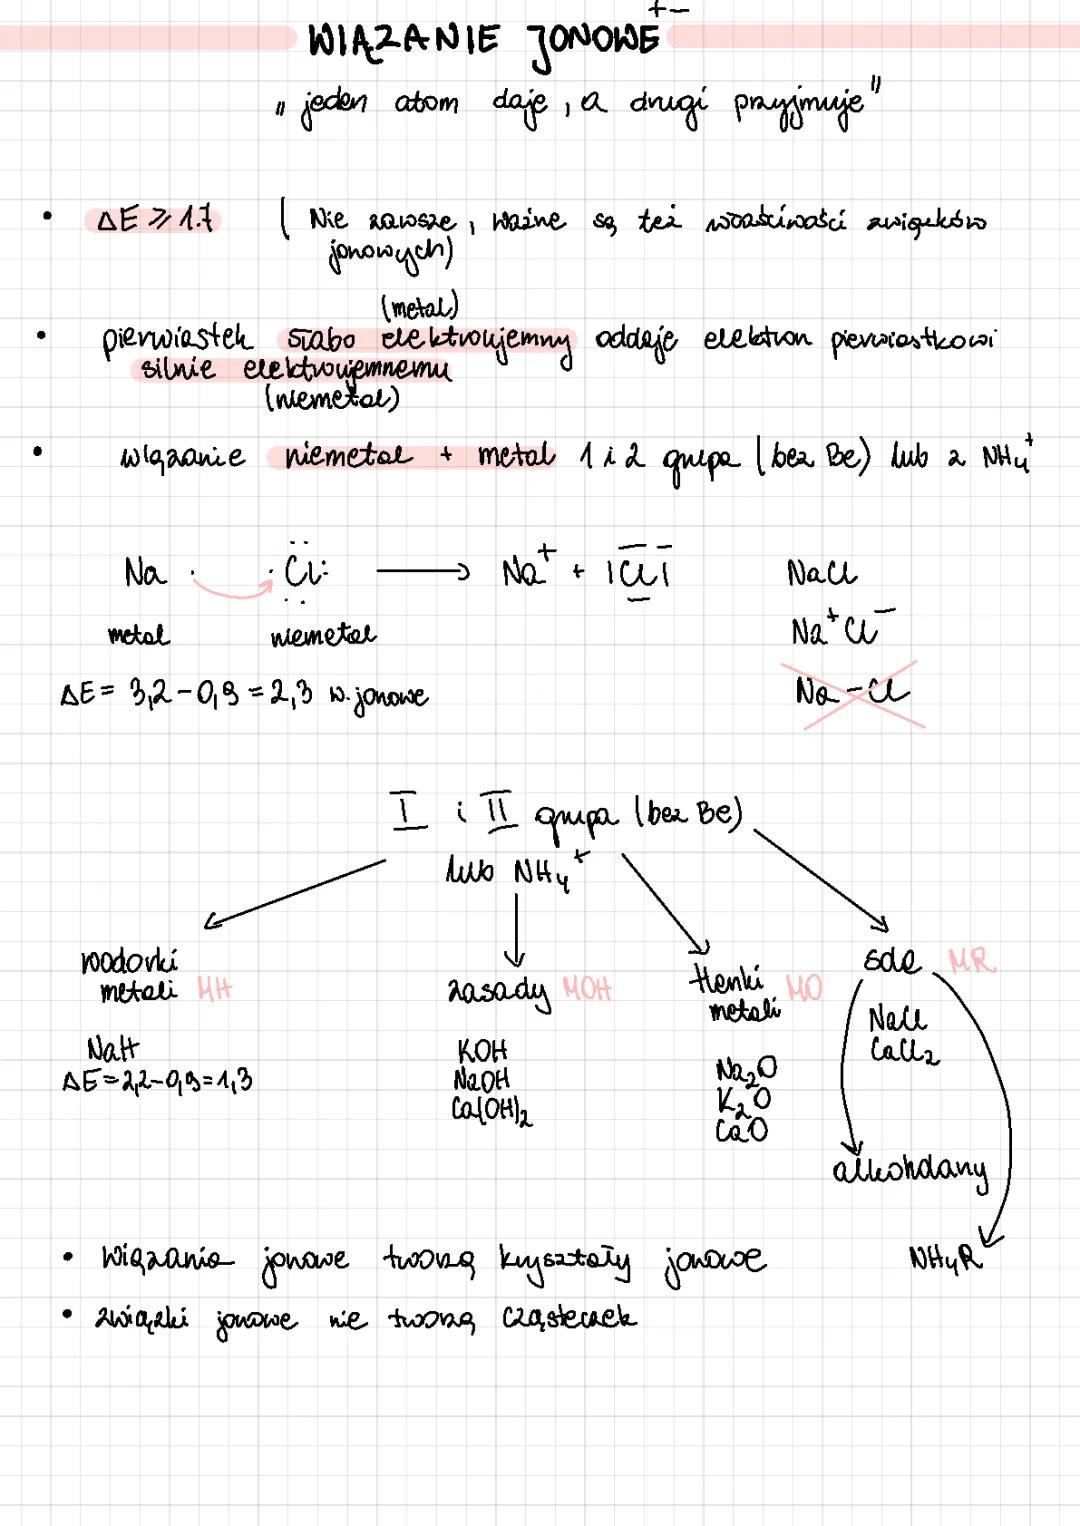 WIĄZANIE JONOWE + -
„jeden atom daje, a drugi przyjmuje"
• ΔE ⩾ 1.7 ( Nie zawsze, ważne są też właściwości związków
jonowych)
(metal)
• pierwiastek słabo elektroujemny oddaje elektron pierwiastkowi
silnie elektroujemnemu
(niemetal)
• wiązanie niemetal + metal 1 i 2 grupa (bez Be) lub z NH₄⁺
Na · ·Cl: ⟶ Na⁺ + |Cl| NaCl
metal niemetal Na⁺Cl⁻
ΔE = 3,2 - 0,9 = 2,3 w. jonowe Na - Cl
I i II grupa (bez Be)
lub NH₄⁺
wodorki
metali MH
NaH
ΔE = 2,2 - 0,9 = 1,3
zasady MOH
KOH
NaOH
Ca(OH)₂
tlenki
metali MO
Na₂O
K₂O
CaO
sole MR
NaCl
CaCl₂
alkoholany
NH₄R
• Wiązania jonowe tworzą kryształy jonowe
• związki jonowe nie tworzą cząsteczek